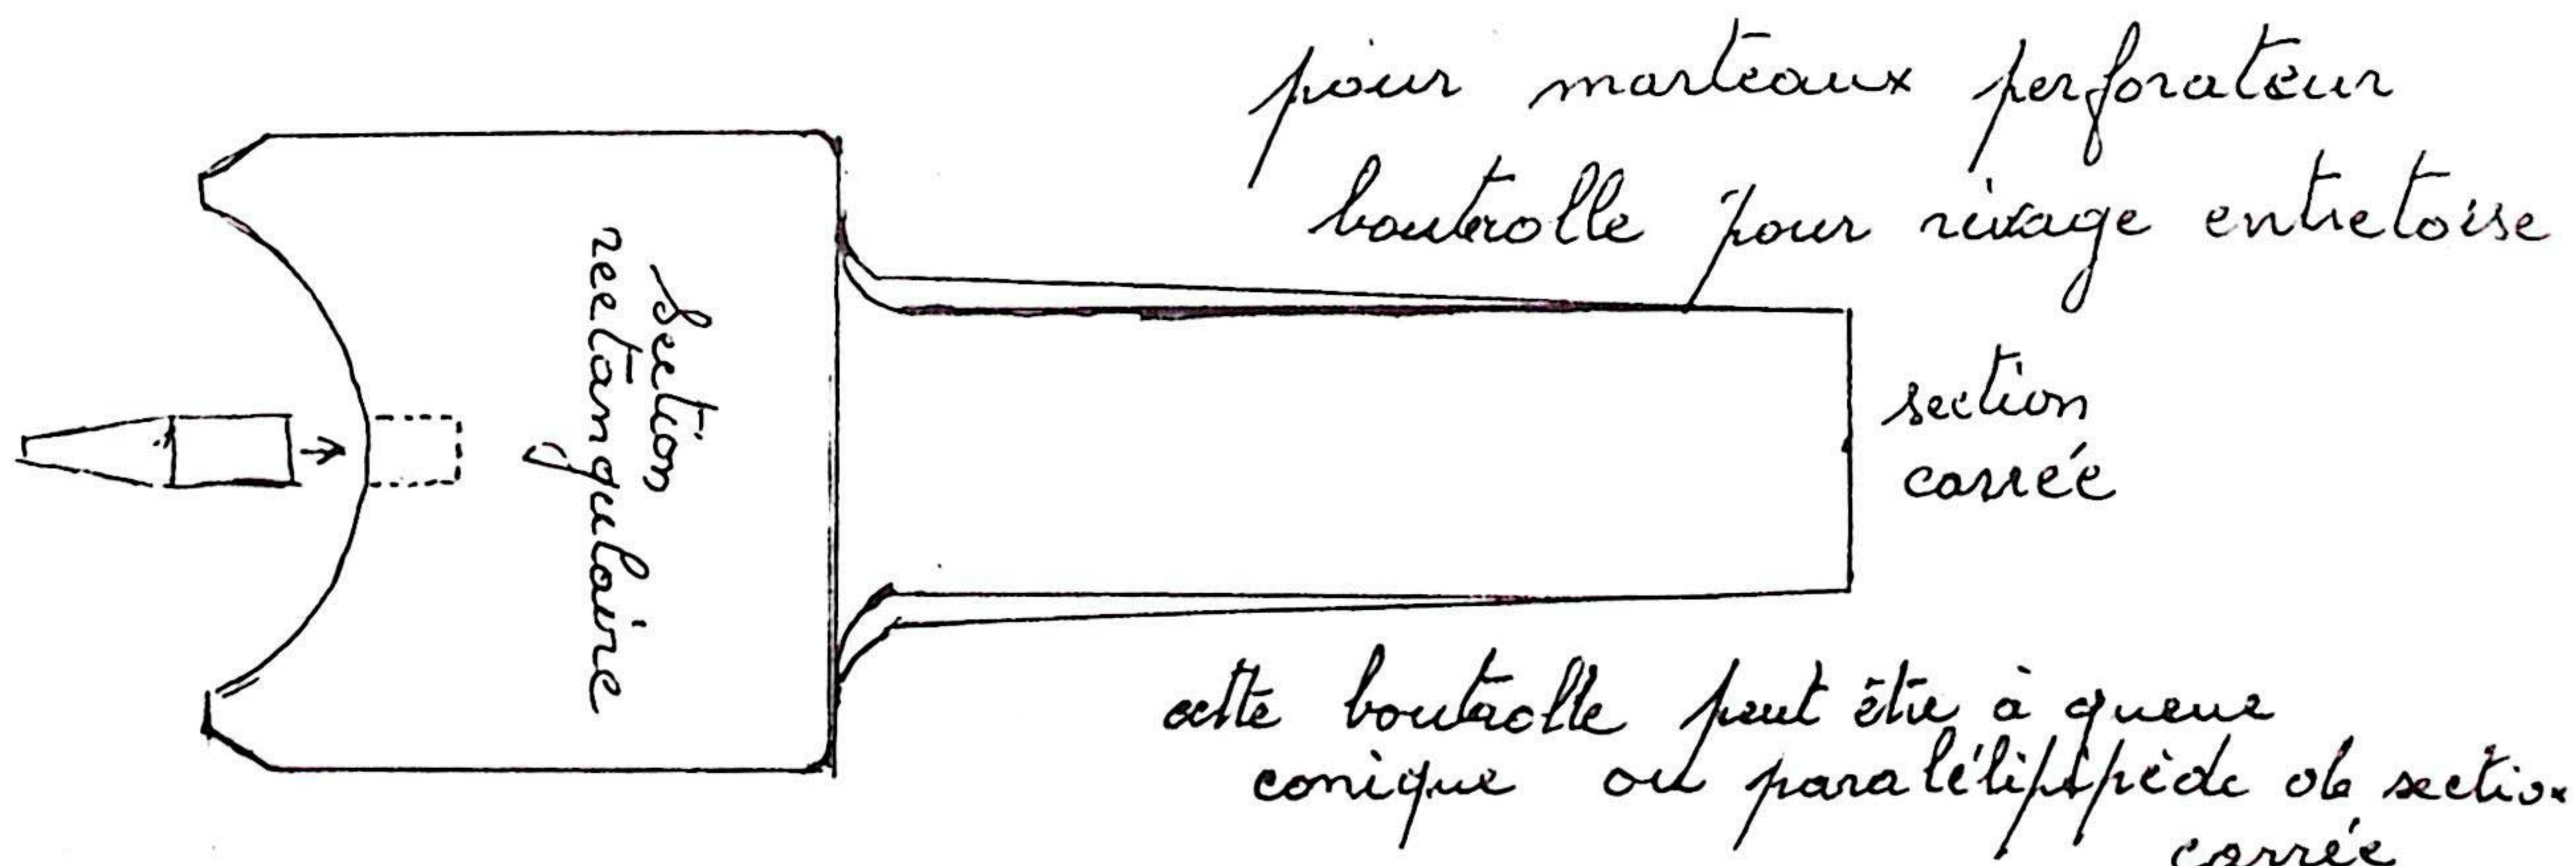 pour marteaux perforateur
boutrolle pour rivage entretoise
Section
rectangulaire
section
carrée
cette boutrolle peut être à queue
conique ou paralélipipède de section
carrée